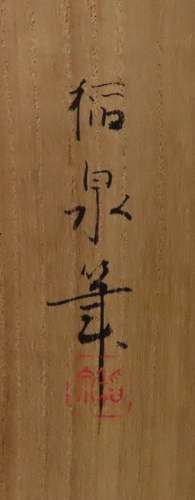 稲泉筆